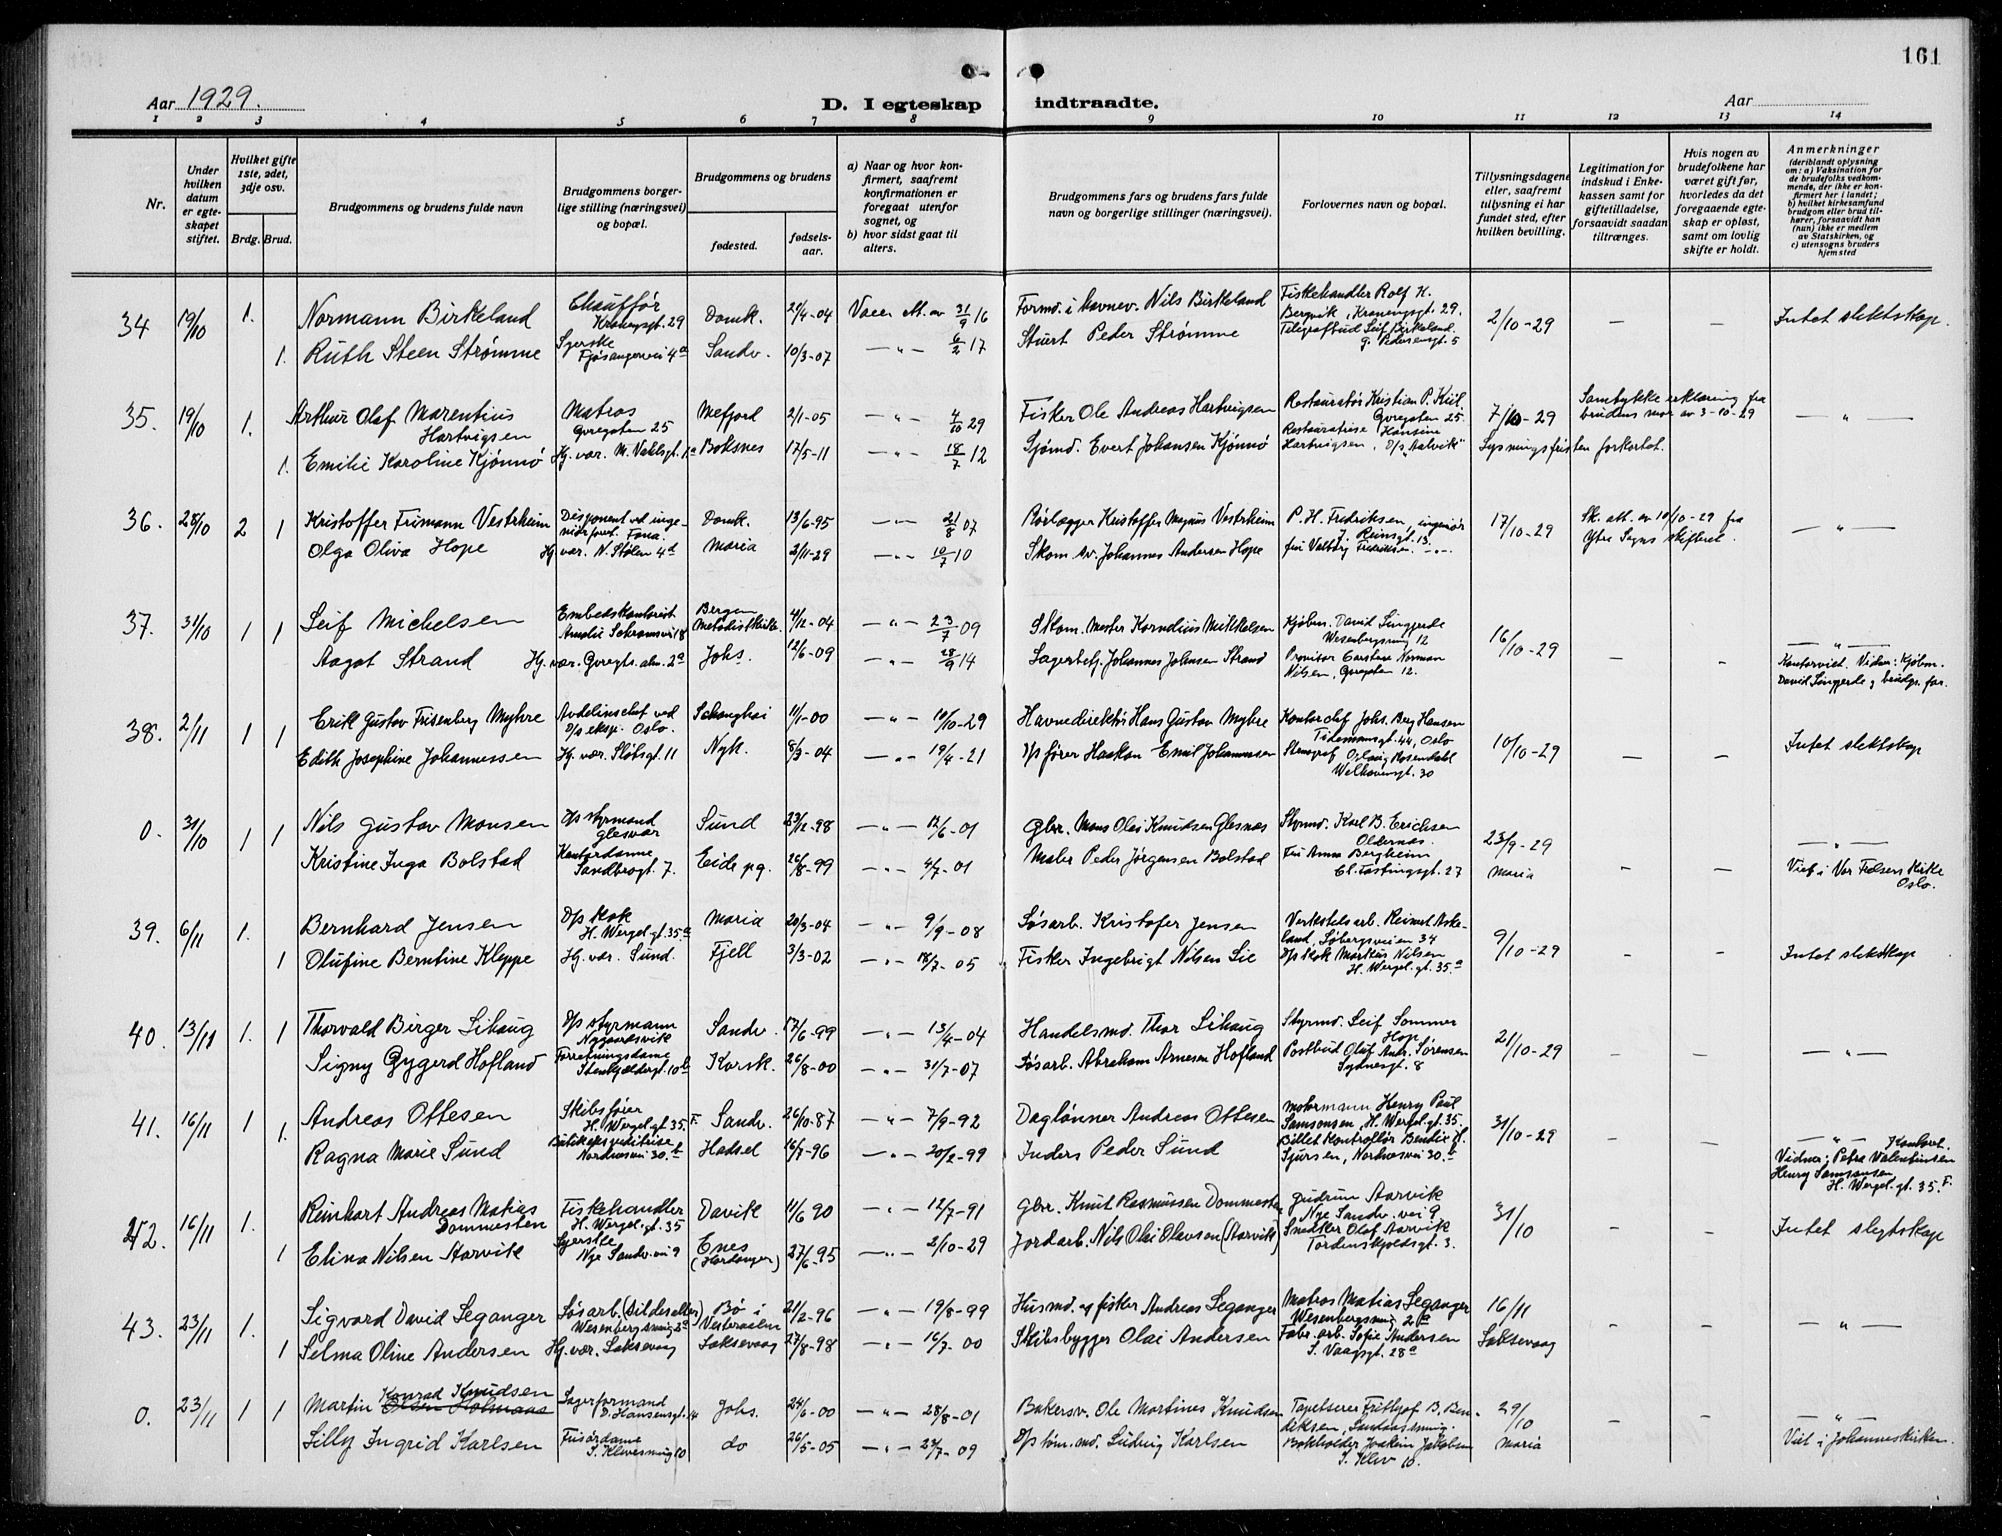 161
Aar 1929.
D. I egteskap indtraadte.
Aar
1 2 3 4 5 6 7 8 9 10 11 12 13 14
Nr.
Under hvilken datum er egteskapet stiftet.
Hvilket gifte 1ste, 2det, 3dje osv.
Brdg. Brud.
Brudgommens og brudens fulde navn
Brudgommens borgerlige stilling (næringsvei) og bopæl.
Brudgommens og brudens
fødested.
fødselsaar.
a) Naar og hvor konfirmert, saafremt konfirmationen er foregaat utenfor sognet, og
b) hvor sidst gaat til alters.
Brudgommens fars og brudens fars fulde navn og borgerlige stillinger (næringsvei).
Forlovernes navn og bopæl.
Tillysningsdagene eller, saafremt tillysning ei har fundet sted, efter hvilken bevilling.
Legitimation for indskud i Enkekassen samt for giftetilladelse, forsaavidt saadan tiltrænges.
Hvis nogen av brudefolkene har været gift før, hvorledes da det foregaaende egteskap er opløst, samt om lovlig skifte er holdt.
Anmerkninger
(deriblandt oplysning om: a) Vaksination for de brudefolks vedkommende, der ikke er konfirmert her i landet; b) hvilket kirkesamfund brudgom eller brud tilhører, forsaavidt han (hun) ikke er medlem av Statskirken, og c) utensogns bruders hjemsted
34 19/10 1. Normann Birkeland Chauffør Kronengsgt. 29 Domk. 21/4-04 Vacc. att. av 31/9 16 Formd. i havnev. Nils Birkeland Fiskehandler Rolf H. Bergvik, Kronengsgt. 29. 2/10-29 — — Intet slektskap.
1. Ruth Steen Strømme Syerske Fjøsangervei 4a Sandv. 10/3-07 — " — 6/2 17 Stuert Peder Strømme Telegrafbud Leif Birkeland G. Pedersensgt. 5
35. 19/10 1. Arthur Olaf Marentius Hartvigsen Matros Øvregaten 25 Mefjord 2/1-05 — " — 4/10 29 Fisker Ole Andreas Hartvigsen Restauratør Kristian P. Kiil Øvregaten 25. 7/10-29 Samtykke erklæring fra brudens mor av 3-10-29 — " —
1. Emilie Karoline Kjønnø Hj. vær. M. Vahlsgt. 1a Boksnes 17/5-11 — " — 18/7 12 Sjømd. Evert Johansen Kjønnø Restauratrise Hansine Hartvigsen, D/s "Aalvik" Lysningsfristen forkortet.
36. 28/10 2 1 Kristoffer Frimann Vestrheim Disponent ved ingeniørforet. Fana. Domk. 13/6-95 — " — 21/8 07 Rørlægger Kristoffer Magnus Vestrheim P. H. Fredriksen, ingeniør J. Reinsgt. 13. 17/10-29 Sk. att. av 10/10-29 fra Ytre Sogns skifteret. — " —
Olga Oliva Hope Hj. vær. N. Stølen 4d Maria 2/11-29 — " — 10/7 10 Skom. sv. Johannes Andersen Hope fru Valborg Fredriksen — " —
37. 31/10 1 1 Leif Michelsen Embedskontorist Amalie Schramsvei 8 Bergen Metodistkirke. 4/12-04 — " — 23/7 09 Skom. mester Kornelius Mikkelsen Kjøbm. David Lingjerde Wesenbergsmug 12 16/10-29 — — — " —
Aagot Strand Hj. vær. Øvregts. alm. 2a Johs. 12/6-09 — " — 28/9 14 Lagerbetj. Johannes Johnsen Strand Provisor Carstens Norman Nilsen, Øvregaten 12. Kontorviet. Vidner: Kjøbm. David Lingjerde og brudgs. far.
38. 2/11 1 1 Erik Gustav Frisenberg Myhre Avdelinschef ved D/s eksp. Oslo. Schanghai 11/1-00 — " — 10/10-29 Havnedirektør Hans Gustav Myhre Kontorchef Johs. Berg Hansen Tidemansgt. 44, Oslo 10/10-29 — — Intet slektskap
Edith Josephine Johannessen Hj. vær. Slotsgt. 11 Nyk. 8/3-04 — " — 19/4-21 D/s fører Haakon Emil Johannessen Stenograf Oslaug Rosendahl Welhavensgt. 30
0. 31/10 1 1 Nils Gustav Monsen D/s styrmand Glesvær Sund 23/12-98 — " — 12/6-01 Gbr. Mons Olai Knudsen Glesnæs Styrmd. Karl B. Erichsen Oldernæs. 23/9-29 — — — " —
Kristine Inga Bolstad Kontordame Sandbrogt. 7. Eide pg. 26/8-99 — " — 4/7-01 Maler Peder Jørgensen Bolstad Fru Anna Bergheim Cl. Fastingsgt. 27 Maria Viet i Vor Frelsers Kirke Oslo.
39. 6/11 1. Bernhard Jensen D/s kok H. Wergel. gt. 35.a Maria 20/3-04 — " — 9/9-08 Løsarb. Kristofer Jensen Verkstedsarb. Reinert Askeland, Løbergsveien 34 9/10-29 — — Intet slektskap
1 Olufine Berntine Kleppe Hj. vær. Sund. Fjell 3/3-02 — " — 18/7-05 Fisker Ingebrigt Nilsen Lie D/s kok Markus Nilsen H. Wergel. gt. 35.a
40. 13/11 1. 1 Thorvald Birger Lihaug D/s styrmann Nygaardsvik Sandv. 17/6-99 — " — 13/4-04 Handelsmd. Thor Lihaug Styrmd. Leif Sommer Hop 21/10-29 — — — " —
Signy Gygerd Hofland Forretningsdame Stenkjældergt. 10b Korsk. 26/8-00 — " — 31/7-07 Løsarb. Abraham Arnesen Hofland Postbud Oluf Andr. Sørensen Sydnesgt. 8
41. 16/11 1 1. Andreas Ottesen Skibsfører H. Wergel. gt. 35. F. Sandv. 26/10-87 — " — 7/9-92 Daglønner Andreas Ottesen Motormann Henry Paul Samsonsen, H. Wergel. gt. 35. 31/10-29 — — — " — Kontorvi.
Ragna Marie Sund Butikekspeditrise Nordnesvei 30.b Hadsel 16/7-96 — " — 20/2-99 Inders Peder Sund Billet kontrollør Bendix H. Sjursen, Nordnesvei 30.b Vidner: Petra Valentinsen Henry Samsonsen H. Wergel. gt. 35. F.
42. 16/11 1. Reinhart Andreas Matias Dommesten Fiskehandler H. Wergel. gt. 35 Davik 11/6 90 — " — 12/7-91 Gbr. Knut Rasmussen Dommesten Gudrun Aarvik Nye Sandv. vei 9 31/10 — — Intet slegtskap
1 Elina Nilsen Aarvik Syerske Nye Sandv. vei 9 Enes (Hardanger) 27/6-95 — " — 2/10-29 Jordarb. Nils Olai Olavson (Aarvik) Snedker Olaf Aarvik Tordenskjoldsgt. 3.
43. 23/11 1. Sigvard David Leganger Løsarb. (Sildesalter) Wesenbergsmug 2a Bø i Vesteraalen 21/2-96 — " — 19/8-99 Husmd. og fisker Andreas Leganger Matros Matias Leganger Wesenbergsmug 2a 16/11 — — — " —
1 Selma Oline Andersen Hj. vær. Laksevaag Laksevaag 27/8-98 — " — 16/7-00 Skibsbygger Olai Andersen Fabr. arb. Sofie Andersen S. Vaagsgt. 28a Laksevaag
0. 23/11 1 1 Martin Konrad Knudsen Lagerformand D. Hansensgt. 14 Johs. 24/6-00 — " — 28/8-01 Bakersv. Ole Martines Knudsen Tapetserer Frithjof B. Bendiksen, Sandaasmug. 29/10 — — — " —
Lilly Ingrid Karlsen Frisørdame S. Klevesmug 10 do 26/5-05 — " — 27/7-09 D/s tøm. md. Ludvig Karlsen Bokholder Joakim Jakobsen S. Klev 10. Maria Viet i Johanneskirken.